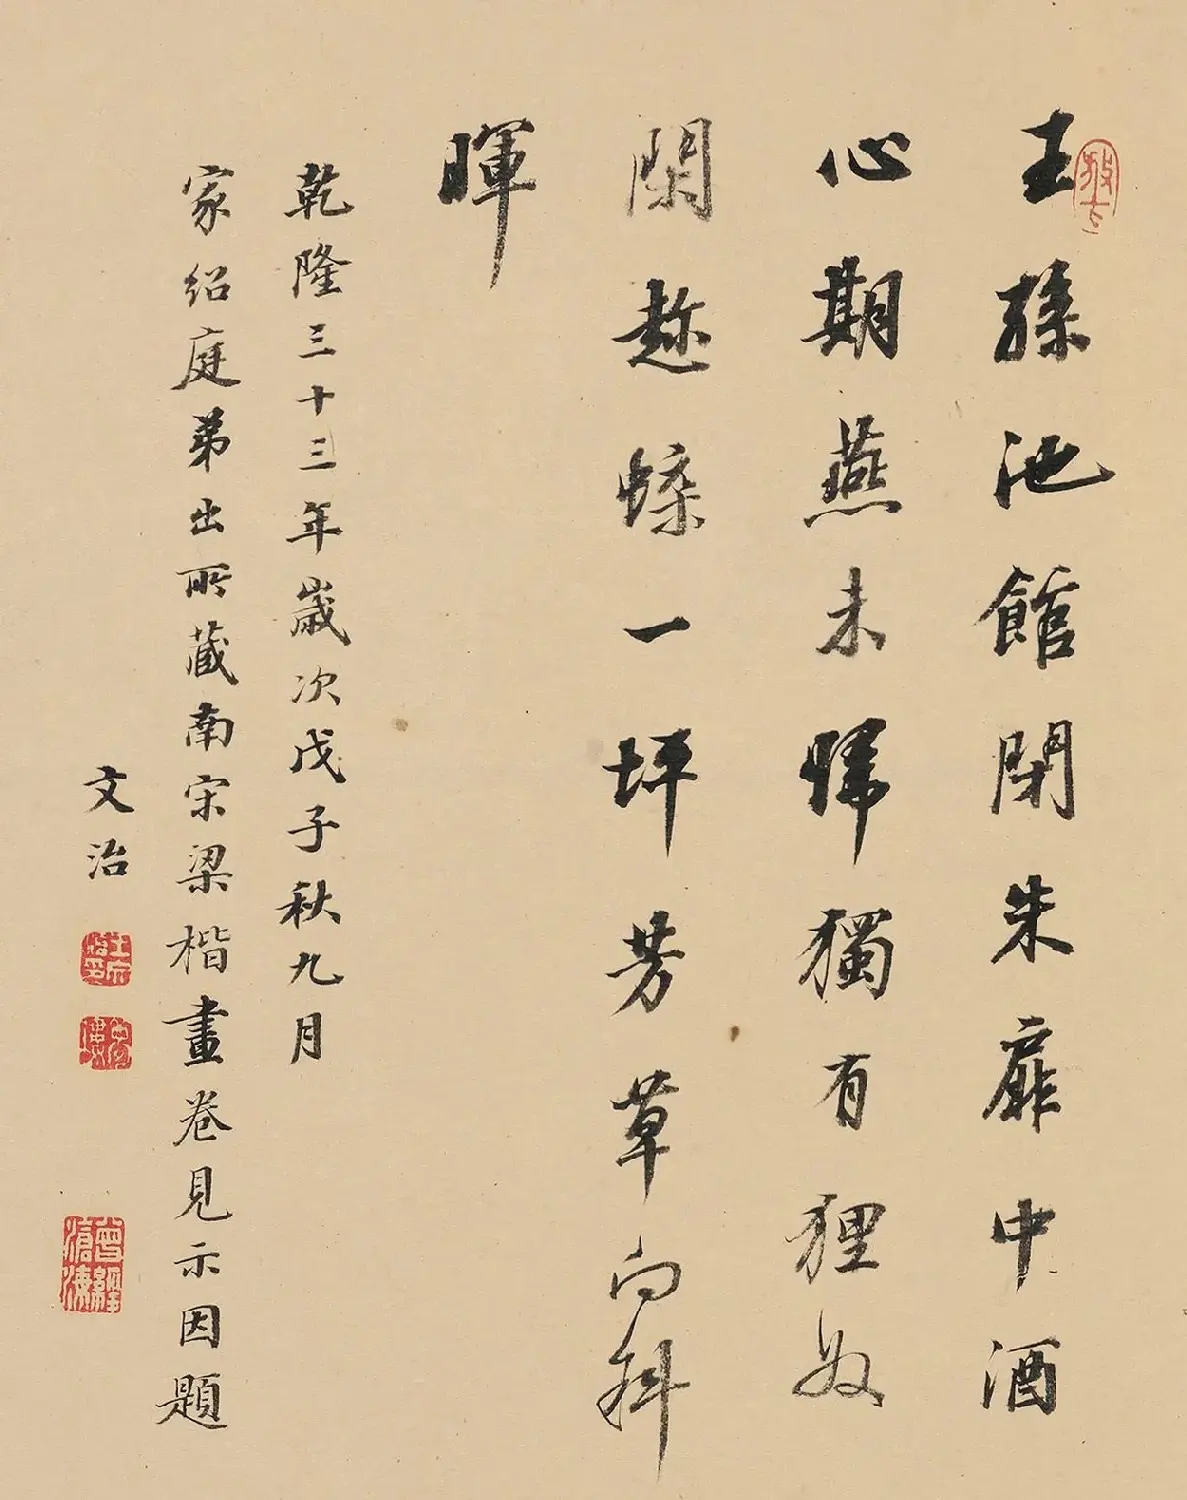 王孫池館閉朱扉中酒
心期燕未歸獨有狸奴
閑趂蝶一坪芳草向斜
暉
乾隆三十三年歲次戊子秋九月
家紹庭弟出所藏南宋梁楷畫卷見示因題
文治
曾經滄海